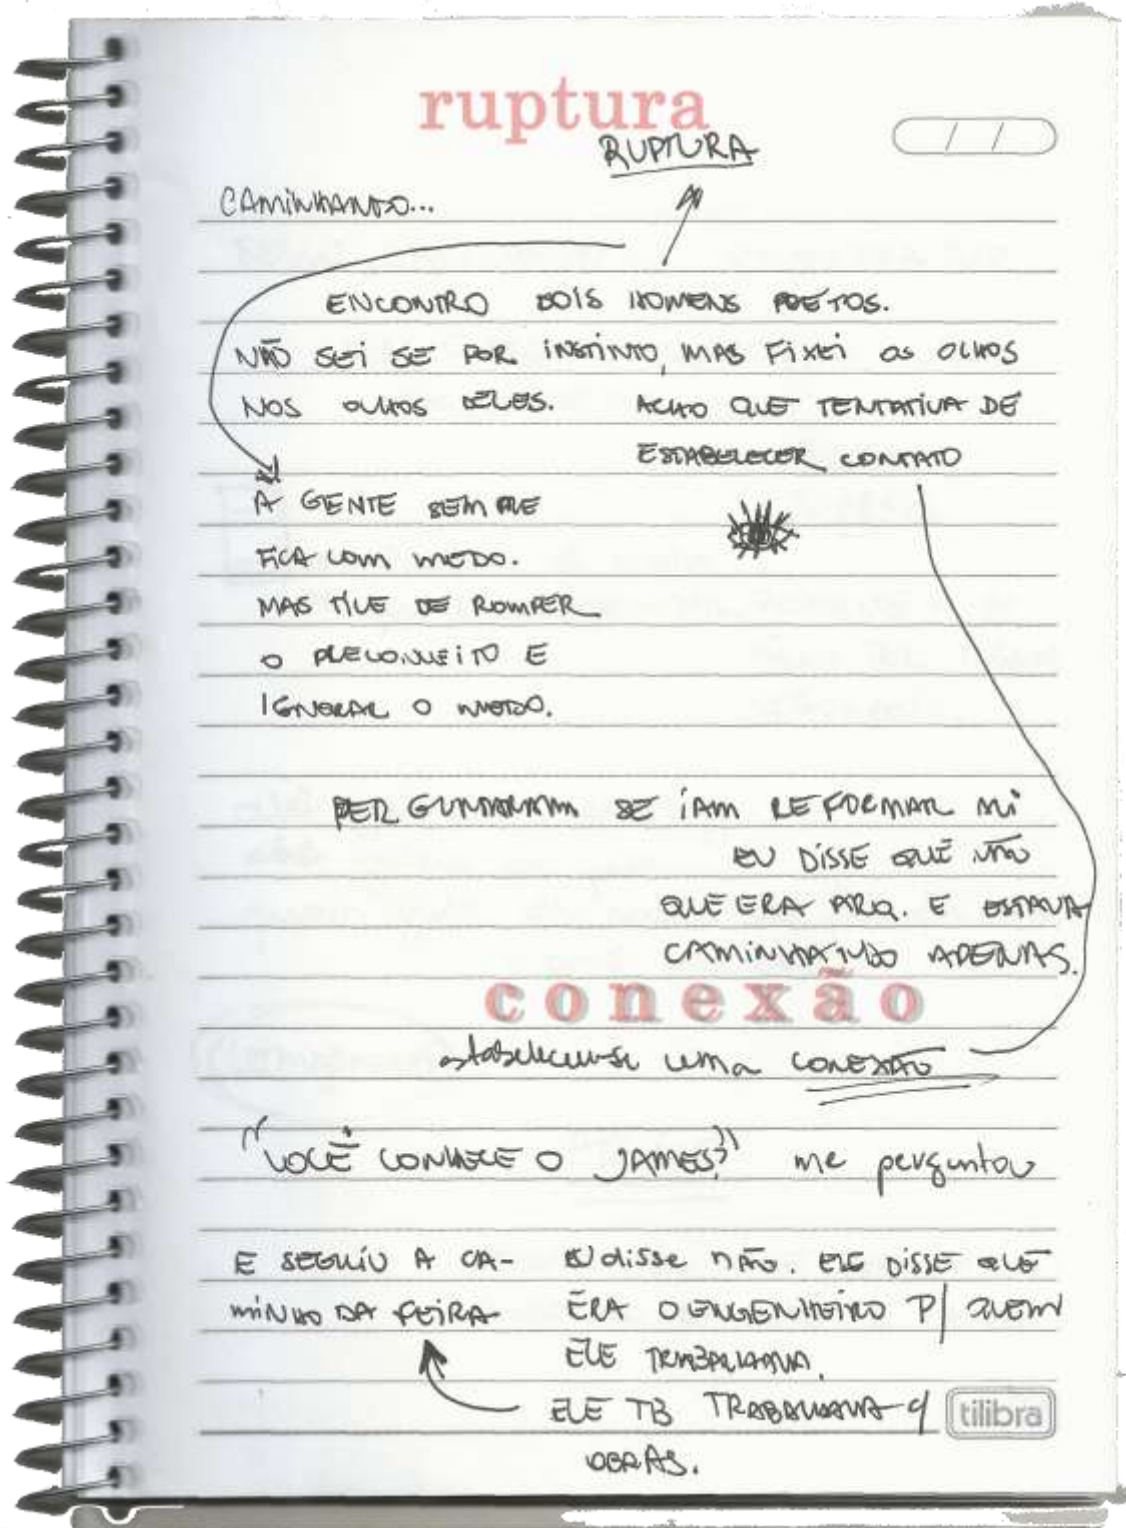 ruptura
RUPTURA
/ /
CAMINHANDO...
ENCONTRO DOIS HOMENS PRETOS.
NÃO SEI SE POR INSTINTO, MAS FIXEI OS OLHOS
NOS OLHOS DELES. ACHO QUE TENTATIVA DE
ESTABELECER CONTATO
A GENTE SEMPRE
FICA COM MEDO.
MAS TIVE DE ROMPER
O PRECONCEITO E
IGNORAR O MEDO.
PERGUNTARAM SE IAM REFORMAR ALI
EU DISSE QUE NÃO
QUE ERA ARQ. E ESTAVA
CAMINHANDO APENAS.
conexão
estabeleceu-se uma CONEXÃO
"VOCÊ CONHECE O JAMES?" me perguntou
EU disse NÃO. ELE DISSE QUE
ERA O ENGENHEIRO P/ QUEM
ELE TRABALHAVA.
ELE TB TRABALHAVA C/
OBRAS.
E SEGUIU A CA-
MINHO DA FEIRA
tilibra